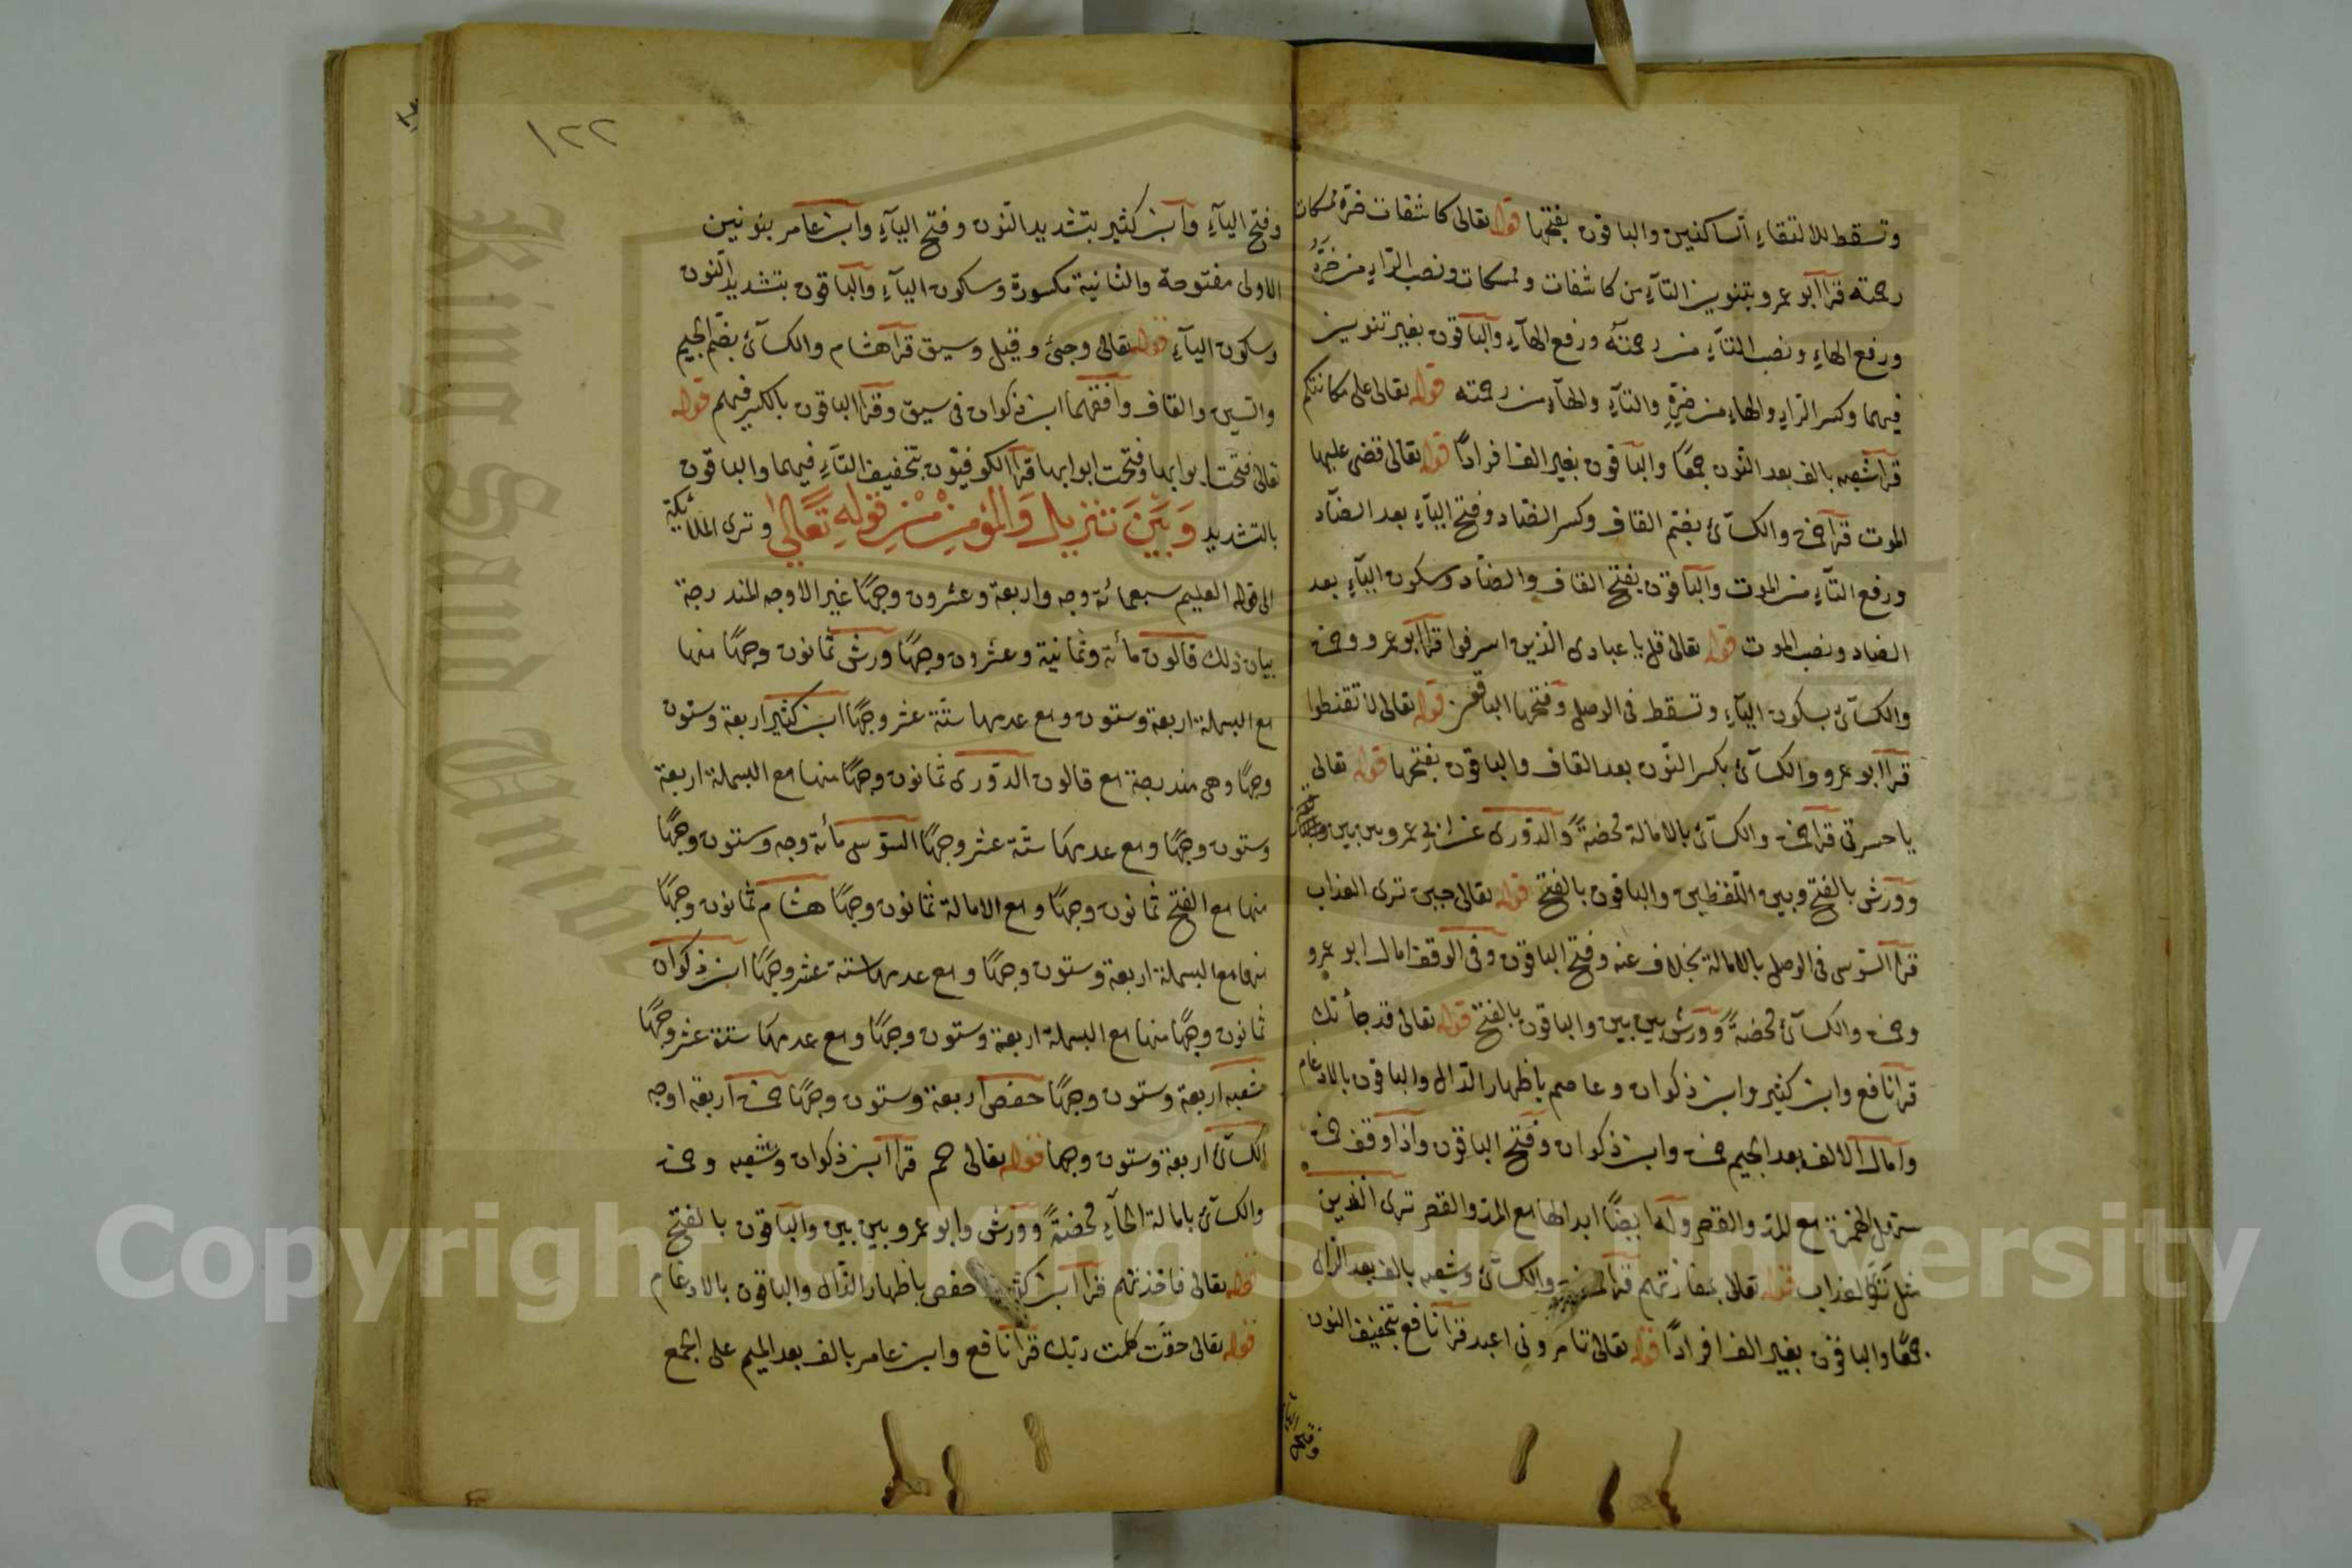 وتسقط للالتقاء الساكنين والباقون بفتحها قوله تعالى كاشفات ضره ممسكات
رحمته قرا ابو عمرو بتنوين التآء من كاشفات وممسكات ونصب الرآء من ضرَّهُ
ورفع الهاء ونصب التآء من رحمتَه ورفع الهآء والباقون بغير تنوين
فيهما وكسر الرآء والهاء من ضرِّهِ والتآء والهآء من رحمته قوله تعالى على مكانتكم
قرا شعبه بالف بعد النون جمعًا والباقون بغير الف افرادًا قوله تعالى قضى عليها
الموت قرا حمزه والكسآئ بضم القاف وكسر الضاد وفتح اليآء بعد الضآد
ورفع التآء من الموت والباقون بفتح القاف والضآد وسكون اليآء بعد
الضاد ونصب الموت قوله تعالى قل يا عبادى الذين اسرفوا قرا ابو عمرو وحمزه
والكسآئ بسكون اليآء وتسقط فى الوصل وفتحها الباقون قوله تعالى لا تقنطوا
قرا ابو عمرو والكسآئ بكسر النّون بعد القاف والباقون بفتحها قوله تعالى
يا حسرتى قرا حمزه والكسآئ بالامالة محضةً والدّورى عن ابي عمرو بين بين
وورش بالفتح وبين اللّفظين والباقون بالفتح قوله تعالى حين ترى العذاب
قرا السّوسى فى الوصل بالامالة بخلاف عنه وفتح الباقون وفى الوقف امال ابو عمرو
وحمزه والكسآئ محضةً وورش بين بين والباقون بالفتح قوله تعالى قد جأتك
قرا نافع وابن كثير وابن ذكوان وعاصم باظهار الدّال والباقون بالادغام
وامال الالف بعد الجيم حمزه وابن ذكوان وفتح الباقون واذا وقف حمزه
سهل الهمزة مع المدّ والقصر وله ايضًا ابدالها مع المدّ والقصر ترى الّذين
مثل ترى العذاب قوله تعالى بمفازتهم قرا حمزه والكسآئ وشعبه بالف بعد الزاى
جمعًا والباقون بغير الف افرادًا قوله تعالى تامروني اعبد قرا نافع بتخفيف النون
١٢٢
وفتح اليآء وابن كثير بتشديد النّون وفتح اليآء وابن عامر بنونين
الاولى مفتوحة والثانية مكسورة وسكون اليآء والباقون بتشديد النون
وسكون اليآء قوله تعالى وجئ وقيل وسيق قرا هشام والكسآئ بضم الجيم
والسين والقاف وافقهما ابن ذكوان فى سيق وقرا الباقون بالكسر فيهم قوله
تعالى فتحت ابوابها وفتحت ابوابها قرا الكوفيّون بتخفيف التآء فيهما والباقون
بالتشديد وَبَيْنَ تنزيل وَالمؤمِن مِنْ قولِهِ تَعَالى وترى الملائكة
الى قوله العليم سبعمائة وجه واربعة وعشرون وجهًا غير الاوجه المندرجة
بيان ذلك قالون مائة وثمانية وعشرون وجهًا ورش ثمانون وجهًا منها
مع البسملة اربعة وستون ومع عدمها ستّة عشر وجهًا ابن كثير اربعة وستون
وجهًا وهى مندرجة مع قالون الدّورى ثمانون وجهًا منها مع البسملة اربعة
وستون وجهًا ومع عدمها ستّة عشر وجهًا السّوسى مائة وجه وستون وجهًا
منها مع الفتح ثمانون وجهًا ومع الامالة ثمانون وجهًا هشام ثمانون وجهًا
منها مع البسملة اربعة وستون وجهًا ومع عدمها ستة عشر وجهًا ابن ذكوان
ثمانون وجهًا منها مع البسملة اربعة وستون وجهًا ومع عدمها ستة عشر وجهًا
شعبه اربعة وستون وجهًا حفص اربعة وستون وجهًا حمزه اربعة اوجه
الكسآئ اربعة وستون وجها قوله تعالى حم قرا ابن ذكوان وشعبه وحمزه
والكسآئ بامالة الحآء محضةً وورش وابو عمرو بين بين والباقون بالفتح
قوله تعالى فاخذتهم قرا ابن كثير حفص باظهار الذّال والباقون بالادغام
قوله تعالى حقّت كلمت ربّك قرا نافع وابن عامر بالف بعد الميم على الجمع
King Saud University
Copyright © King Saud University